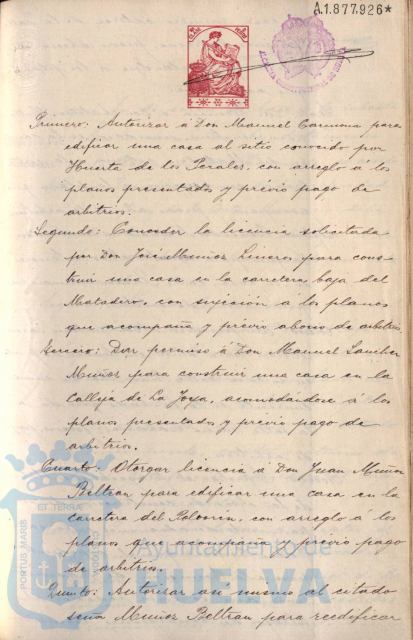 A.1.877.926*
Primero: Autorizar á Don Manuel Carmona para
edificar una casa al sitio conocido por
Huerta de los Perales, con arreglo á los
planos presentados y previo pago de
arbitrios.
Segundo: Conceder la licencia solicitada
por Don José Muñoz Lineros para cons-
truir una casa en la carretera baja del
Matadero, con sujeción á los planos
que acompaña y previo abono de arbitrios
Tercero: Dar permiso á Don Manuel Sanchez
Muñoz para construir una casa en la
Calleja de La Joya, acomodándose á los
planos presentados y previo pago de
arbitrios.
Cuarto: Otorgar licencia á Don Juan Muñoz
Beltran para edificar una casa en la
Carretera del Polvorin, con arreglo á los
planos que acompaña y previo pago
de arbitrios.
Quinto: Autorizar asi mismo al citado
señor Muñoz Beltran para reedificar
PORTUS MARIS
ET TERRÆ
Ayuntamiento de
HUELVA